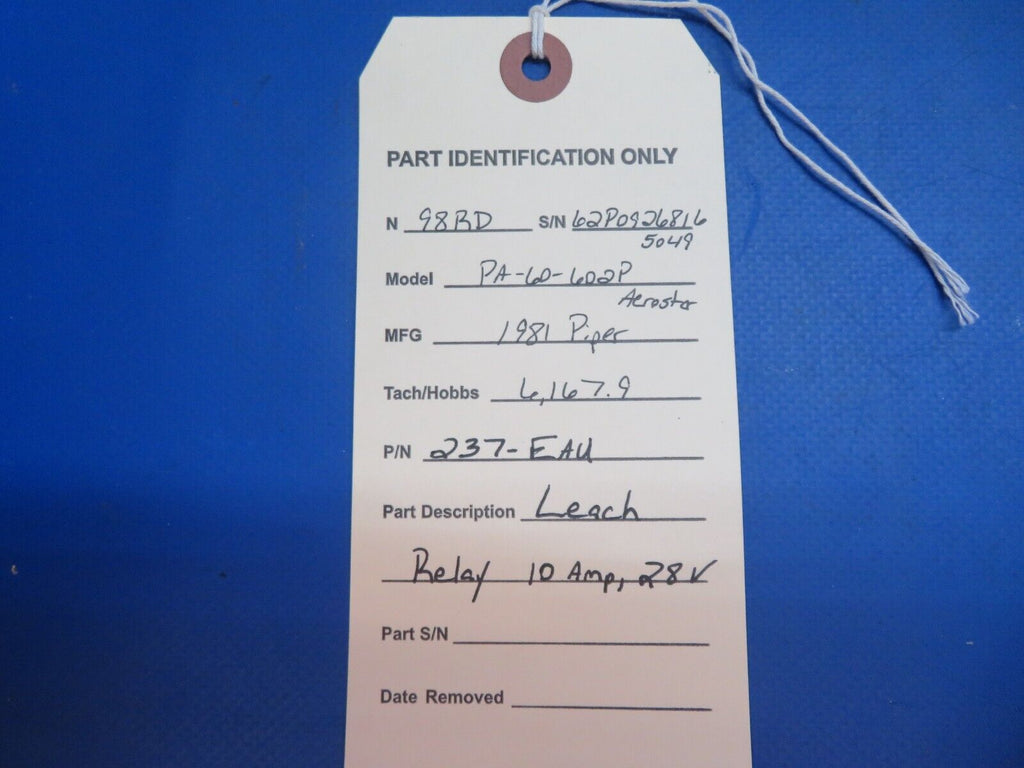 PART IDENTIFICATION ONLY
N 98RD S/N 62P0926816
5049
Model PA-60-602P
Aerostar
MFG 1981 Piper
Tach/Hobbs 6,167.9
P/N 237-EAU
Part Description Leach
Relay 10 Amp, 28V
Part S/N
Date Removed